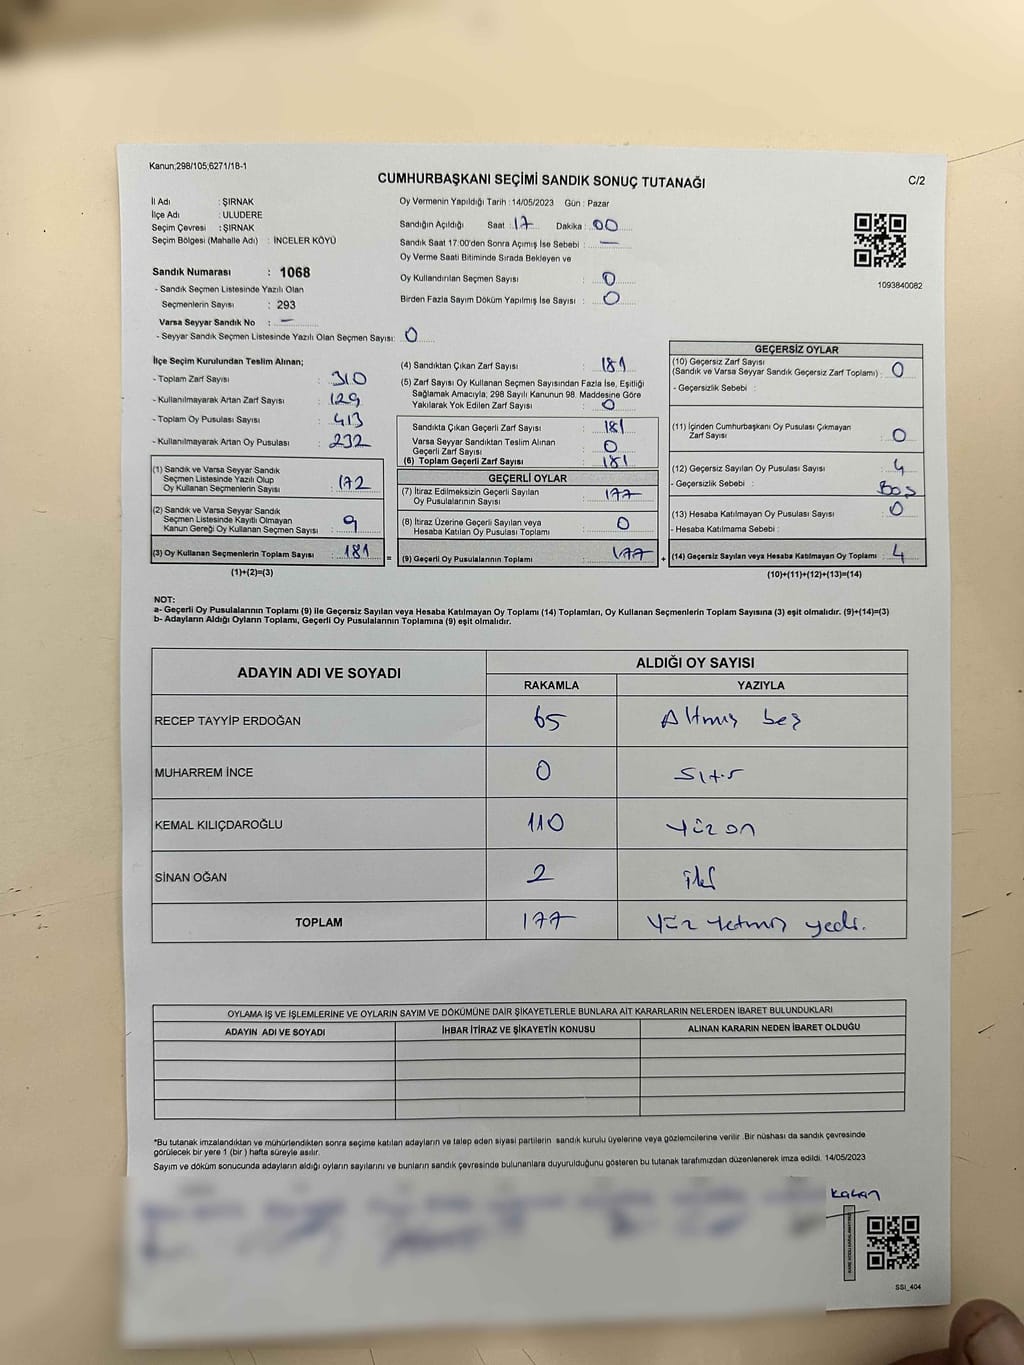 Kanun;298/105;6271/18-1
CUMHURBAŞKANI SEÇİMİ SANDIK SONUÇ TUTANAĞI
C/2
İl Adı : ŞIRNAK
İlçe Adı : ULUDERE
Seçim Çevresi : ŞIRNAK
Seçim Bölgesi (Mahalle Adı) : İNCELER KÖYÜ
Sandık Numarası : 1068
- Sandık Seçmen Listesinde Yazılı Olan
Seçmenlerin Sayısı : 293
Varsa Seyyar Sandık No : —
- Seyyar Sandık Seçmen Listesinde Yazılı Olan Seçmen Sayısı: 0
Oy Vermenin Yapıldığı Tarih : 14/05/2023 Gün : Pazar
Sandığın Açıldığı Saat : 17 Dakika : 00
Sandık Saat 17:00'den Sonra Açımış İse Sebebi : —
Oy Verme Saati Bitiminde Sırada Bekleyen ve
Oy Kullandırılan Seçmen Sayısı : 0
Birden Fazla Sayım Döküm Yapılmış İse Sayısı : 0
1093840082
İlçe Seçim Kurulundan Teslim Alınan;
- Toplam Zarf Sayısı : 310
- Kullanılmayarak Artan Zarf Sayısı : 129
- Toplam Oy Pusulası Sayısı : 413
- Kullanılmayarak Artan Oy Pusulası : 232
(1) Sandık ve Varsa Seyyar Sandık
Seçmen Listesinde Yazılı Olup
Oy Kullanan Seçmenlerin Sayısı : 172
(2) Sandık ve Varsa Seyyar Sandık
Seçmen Listesinde Kayıtlı Olmayan
Kanun Gereği Oy Kullanan Seçmen Sayısı : 9
(3) Oy Kullanan Seçmenlerin Toplam Sayısı : 181
(1)+(2)=(3)
(4) Sandıktan Çıkan Zarf Sayısı : 181
(5) Zarf Sayısı Oy Kullanan Seçmen Sayısından Fazla İse, Eşitliği
Sağlamak Amacıyla; 298 Sayılı Kanunun 98. Maddesine Göre
Yakılarak Yok Edilen Zarf Sayısı : 0
Sandıkta Çıkan Geçerli Zarf Sayısı : 181
Varsa Seyyar Sandıktan Teslim Alınan
Geçerli Zarf Sayısı : 0
(6) Toplam Geçerli Zarf Sayısı : 181
GEÇERLİ OYLAR
(7) İtiraz Edilmeksizin Geçerli Sayılan
Oy Pusulalarının Sayısı : 177
(8) İtiraz Üzerine Geçerli Sayılan veya
Hesaba Katılan Oy Pusulası Toplamı : 0
= (9) Geçerli Oy Pusulalarının Toplamı : 177 +
GEÇERSİZ OYLAR
(10) Geçersiz Zarf Sayısı
(Sandık ve Varsa Seyyar Sandık Geçersiz Zarf Toplamı) : 0
- Geçersizlik Sebebi :
(11) İçinden Cumhurbaşkanı Oy Pusulası Çıkmayan
Zarf Sayısı : 0
(12) Geçersiz Sayılan Oy Pusulası Sayısı : 4
- Geçersizlik Sebebi : Boş
(13) Hesaba Katılmayan Oy Pusulası Sayısı : 0
- Hesaba Katılmama Sebebi :
(14) Geçersiz Sayılan veya Hesaba Katılmayan Oy Toplamı : 4
(10)+(11)+(12)+(13)=(14)
NOT:
a- Geçerli Oy Pusulalarının Toplamı (9) ile Geçersiz Sayılan veya Hesaba Katılmayan Oy Toplamı (14) Toplamları, Oy Kullanan Seçmenlerin Toplam Sayısına (3) eşit olmalıdır. (9)+(14)=(3)
b- Adayların Aldığı Oyların Toplamı, Geçerli Oy Pusulalarının Toplamına (9) eşit olmalıdır.
ADAYIN ADI VE SOYADI
ALDIĞI OY SAYISI
RAKAMLA YAZIYLA
RECEP TAYYİP ERDOĞAN 65 Altmış beş
MUHARREM İNCE 0 Sıfır
KEMAL KILIÇDAROĞLU 110 Yüz on
SİNAN OĞAN 2 iki
TOPLAM 177 Yüz Yetmiş yedi.
OYLAMA İŞ VE İŞLEMLERİNE VE OYLARIN SAYIM VE DÖKÜMÜNE DAİR ŞİKAYETLERLE BUNLARA AİT KARARLARIN NELERDEN İBARET BULUNDUKLARI
ADAYIN ADI VE SOYADI İHBAR İTİRAZ VE ŞİKAYETİN KONUSU ALINAN KARARIN NEDEN İBARET OLDUĞU
*Bu tutanak imzalandıktan ve mühürlendikten sonra seçime katılan adayların ve talep eden siyasi partilerin sandık kurulu üyelerine veya gözlemcilerine verilir .Bir nüshası da sandık çevresinde
görülecek bir yere 1 (bir ) hafta süreyle asılır.
Sayım ve döküm sonucunda adayların aldığı oyların sayılarını ve bunların sandık çevresinde bulunanlara duyurulduğunu gösteren bu tutanak tarafımızdan düzenlenerek imza edildi. 14/05/2023
SSI_404